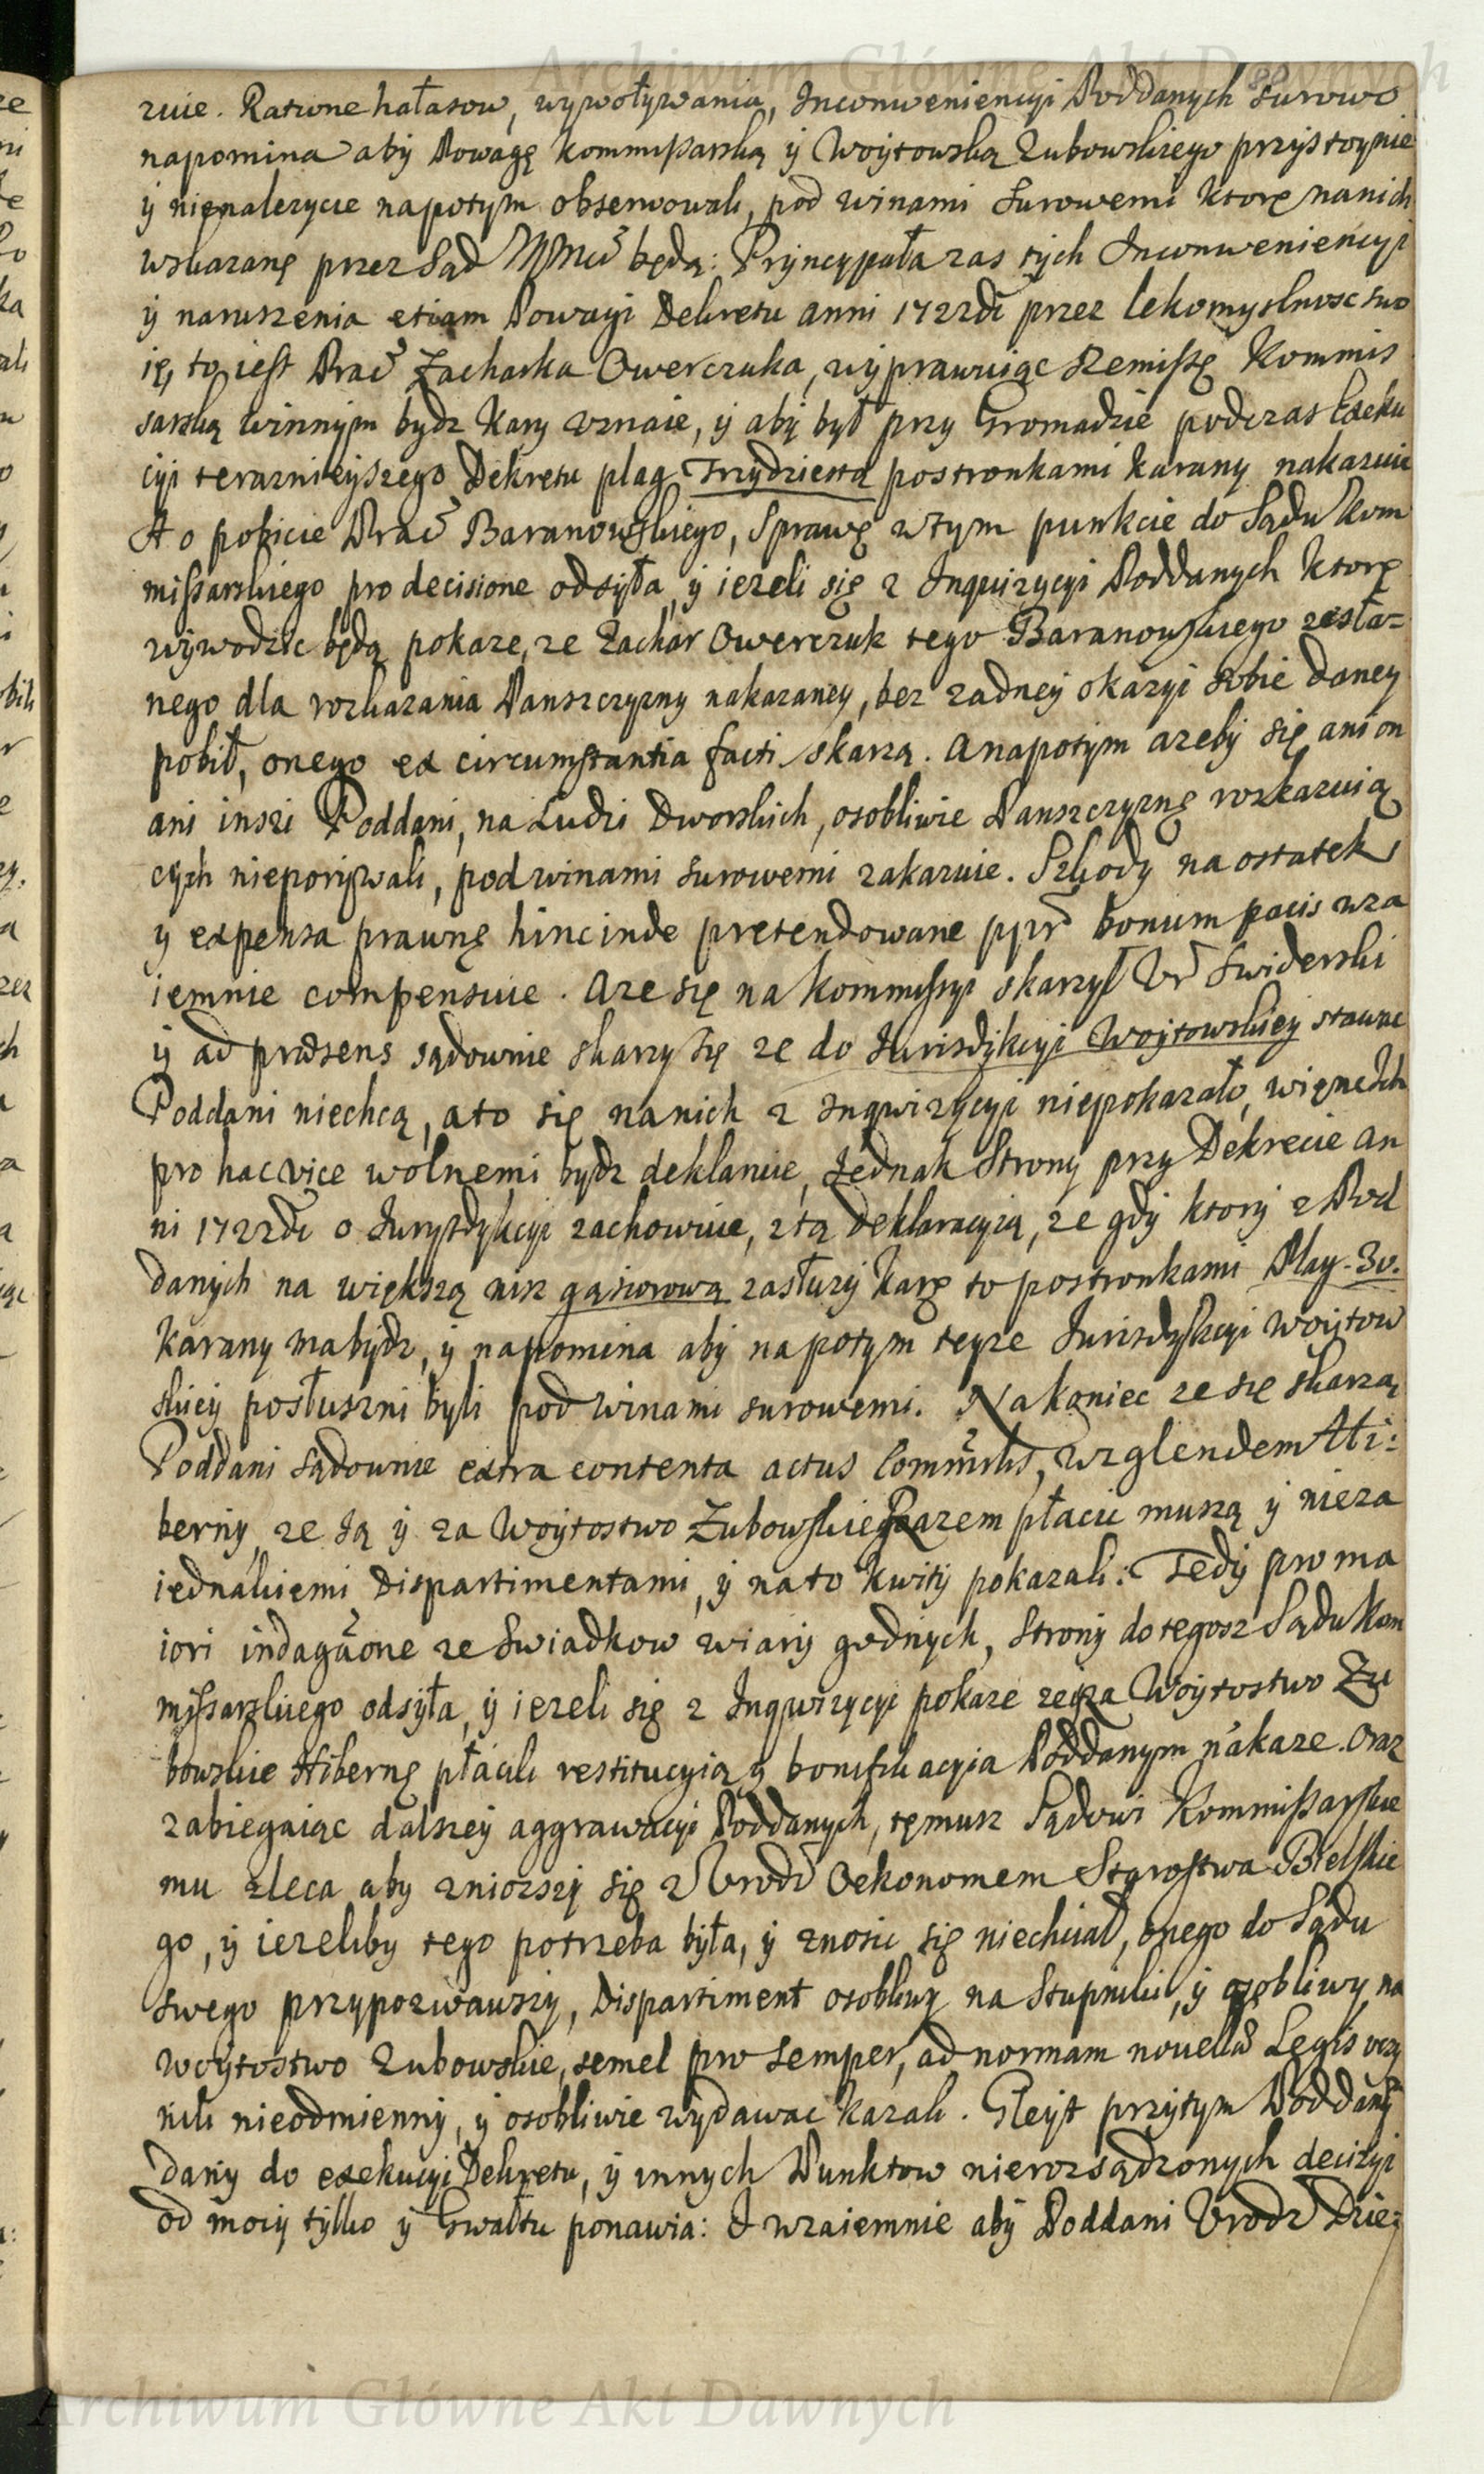 Archiwum Główne Akt Dawnych
zuie. Ratione hałasow, wywoływania, Inconweniencyi Poddanych surowo
napomina aby Powagę Kommissarską y Woytowską Zubowskiego przystoynie
y nienalezycie napotym obserwowali, pod winami surowemi ktorę nanich
wskazanę przez Sąd będą: Pryncypała zas tych Inconweniencyi
y naruszenia etiam Powagi Dekretu anni 1722di przez lekomyslnosc swo
ię, to iest Prac Zacharka Owerczuka, wyprawuiąc Remissę Kommis
sarską winnym bydz Kary uznaie, y aby był przy Gromadzie podczas Exeku
cyi teraznieyszego Dekretu plag Trzydziestą postronkami karany nakazuie
A o pobicie Prac Baranowskiego, Sprawę w tym punkcie do Sądu Kom
missarskiego pro decisione odsyła, y iezeli się z Inquizycyi Poddanych ktorę
wywodzic będą pokaze, ze Zachar Owerczuk tego Baranowskiego zesła=
nego dla rozkazania Panszczyzny nakazaney, bez zadney okazyi sobie daney
pobił, onego ex circumstantia facti skarzą. A napotym azeby się ani on
ani inszi Poddani, na Ludzi Dworskich, osobliwie Panszczyznę rozkazuią
cych nieporywali, pod winami surowemi zakazuie. Szkody na ostatek
y expensa prawnę hinc inde pretendowane ppr bonum pacis wza
iemnie compensuie. A ze się na Kommissyi skarzył Ur Swiderski
y ad præsens sądownie skarzy się ze do Jurisdykcyi Woytowskiey stawac
Poddani niechcą, a to się nanich z Inqwizycyi niepokazało, więnc Ich
pro hac vice wolnemi bydz deklaruie, Jednak Strony przy Dekrecie an
ni 1722di o Jurysdykcyi zachowuie, z tą deklaracyią, ze gdy ktory z Pod
danych na większą nisz gąsiorową zasłuzy Karę to postronkami Plag. 30.
Karany ma bydz, y napomina aby napotym teyze Jurisdykcyi Woytow
skiey posłuszni byli pod winami surowemi. Nakoniec ze się skarzą
Poddani sądownie extra contenta actus Commissis, wzglendem Hi=
berny, ze ią y za Woytostwo Zubowskie Razem płacic muszą y nieza
iednakiemi Dispartimentami, y na to Kwity pokazali: Tedy pro ma
iori indagaone ze Swiadkow wiary godnych, Strony do tegosz Sądu Kom
missarskiego odsyła, y iezeli się z Inqwizycyi pokaze ze za Woytostwo Zu
bowskie Hibernę płacili restitucyią y bonifikacyia Poddanym nakaze. Oraz
zabiegaiąc dalszey aggrawacyi Poddanych, temusz Sądowi Kommissarskie
mu zleca aby zniozszy się z Urodz Oekonomem Starostwa Bielskie
go, y iezeliby tego potrzeba była, y znosic się niechciał, onego do Sądu
swego przypozwawszy, Dispartiment osobliwy na Stupniki, y osobliwy na
Woytostwo Zubowskie, semel pro semper, ad normam novellæ Legis uczy
nili nieodmienny, y osobliwie wydawac kazali. Gleyt przytym Poddany
dany do exekucyi Dekretu, y innych Punktow nierozsądzonych decizyi
od mocy tylko y Gwałtu ponawia: I wzaiemnie aby Poddani Urodz Dzie=
Archiwum Główne Akt Dawnych